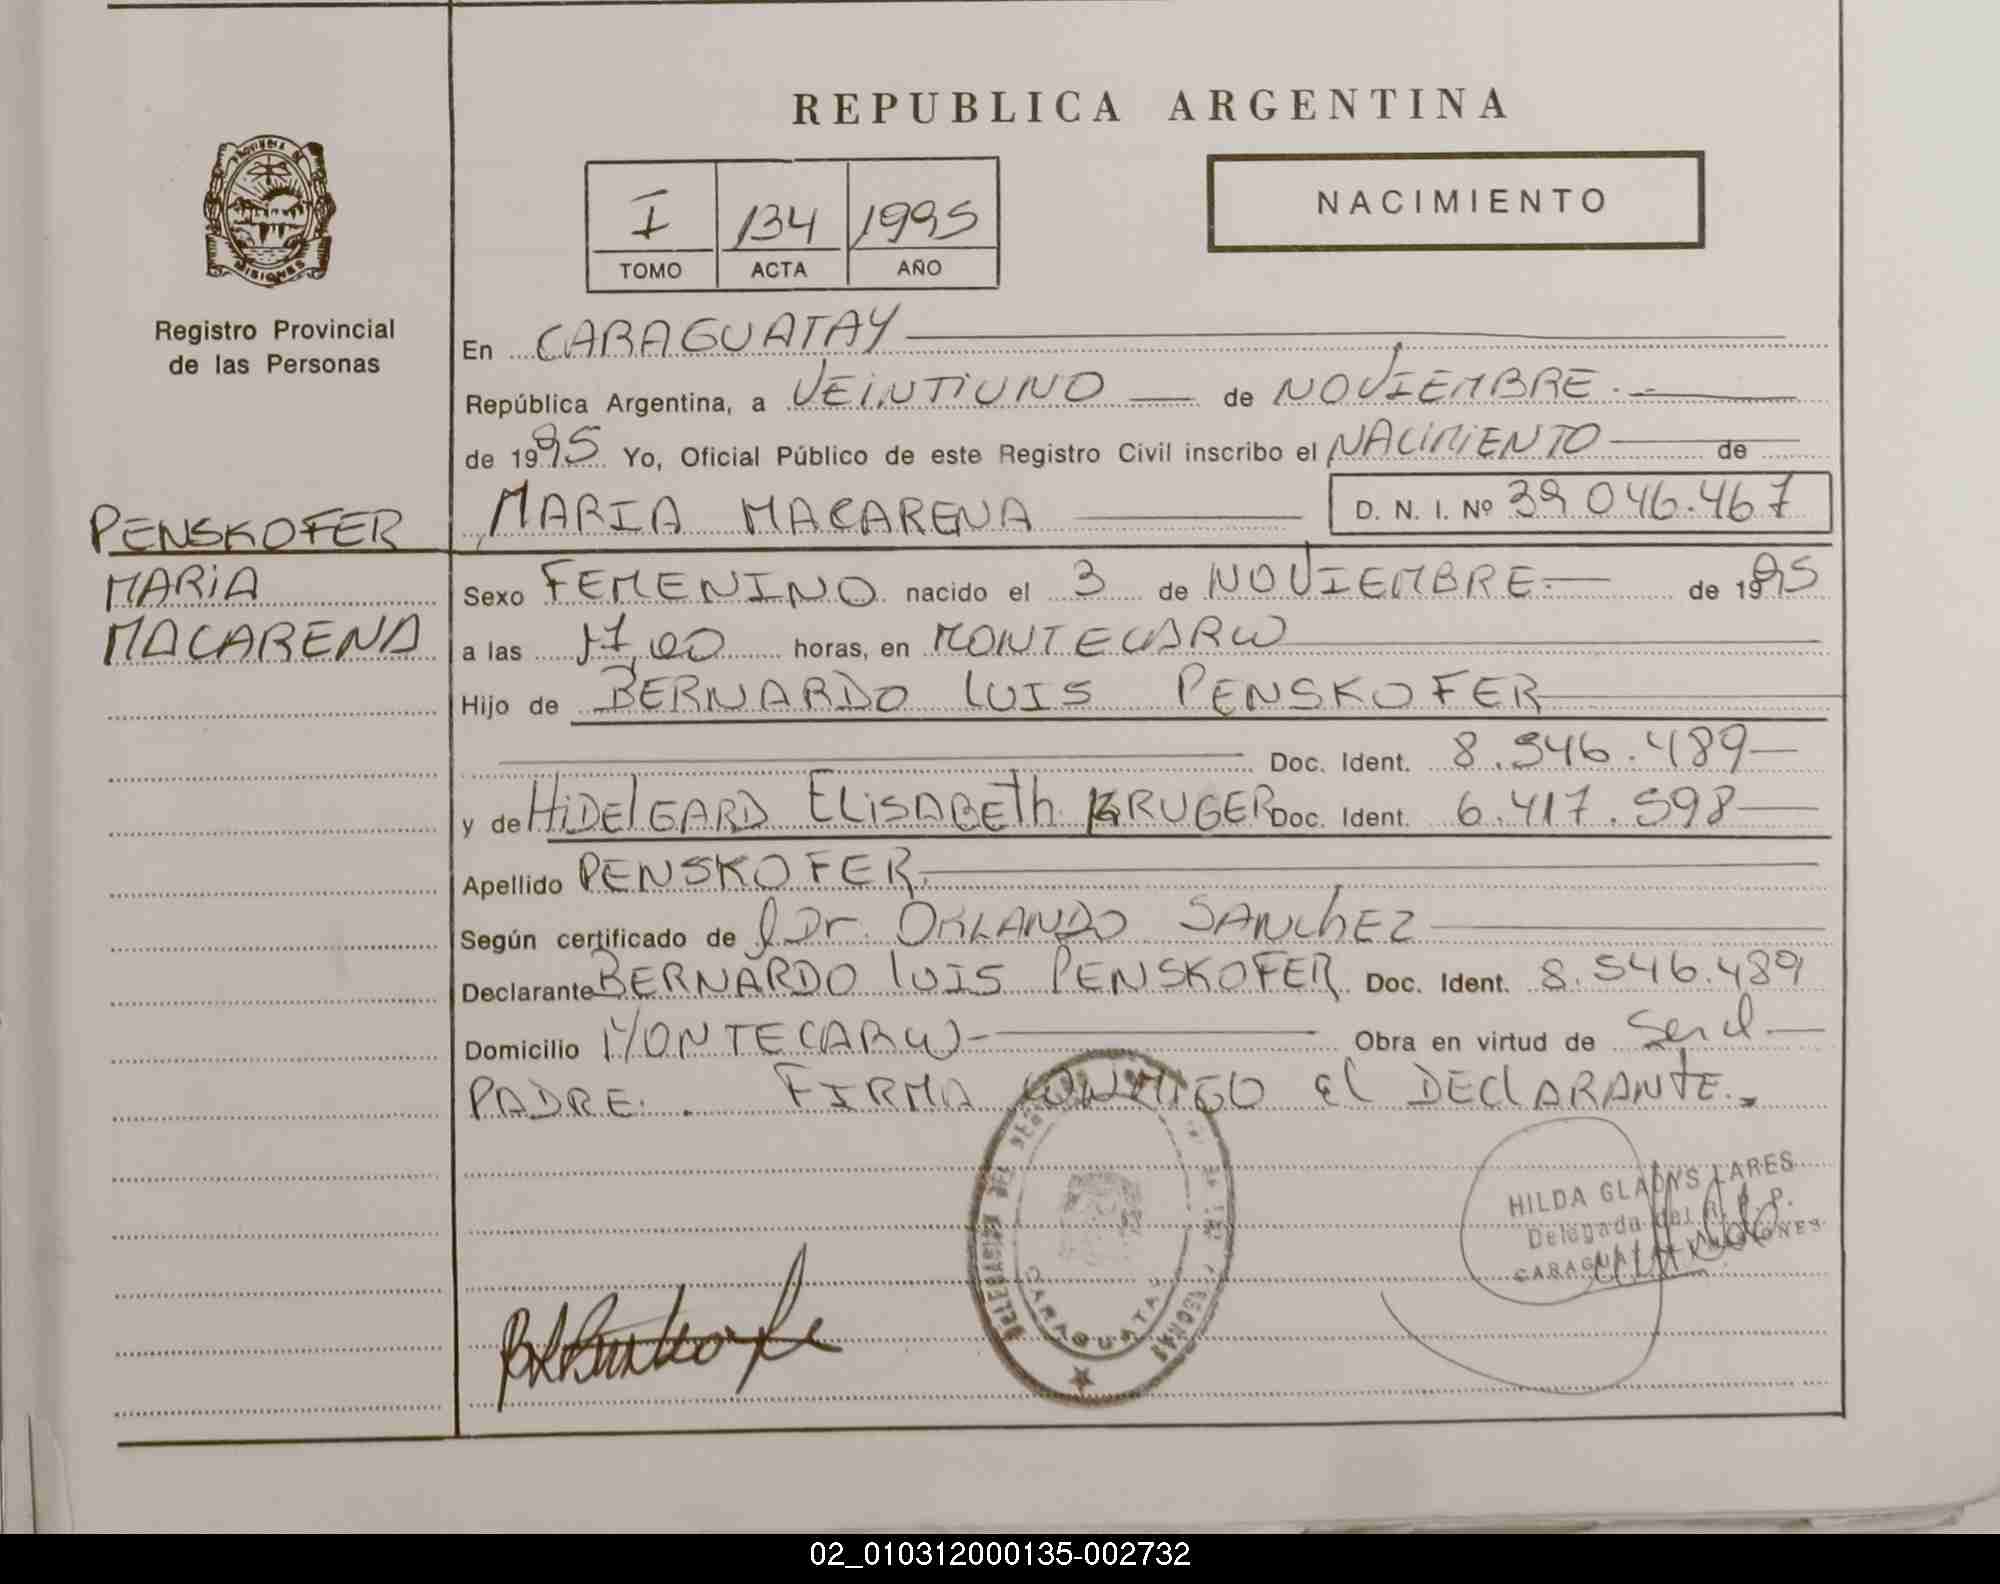 REPUBLICA ARGENTINA
PROVINCIA DE
MISIONES
Registro Provincial
de las Personas
I 134 1995
TOMO ACTA AÑO
NACIMIENTO
En CARAGUATAY
República Argentina, a VEINTIUNO de NOVIEMBRE
de 1995 Yo, Oficial Público de este Registro Civil inscribo el NACIMIENTO de
MARIA MACARENA D. N. I. Nº 39 046.467
PENSKOFER
MARIA
MACARENA
Sexo FEMENINO nacido el 3 de NOVIEMBRE de 1995
a las 17,00 horas, en MONTECARLO
Hijo de BERNARDO LUIS PENSKOFER
Doc. Ident. 8.546.489
y de HIDELGARD ELISABETH KRUGER Doc. Ident. 6.417.598
Apellido PENSKOFER
Según certificado de l Dr. ORLANDO SANCHEZ
Declarante BERNARDO LUIS PENSKOFER Doc. Ident. 8.546.489
Domicilio MONTECARLO Obra en virtud de Ser el
PADRE. FIRMA CONMIGO El DECLARANTE.
HILDA GLADYS LARES
Delegada del R. P. P.
CARAGUATAY MISIONES
CARAGUATAY
02_010312000135-002732